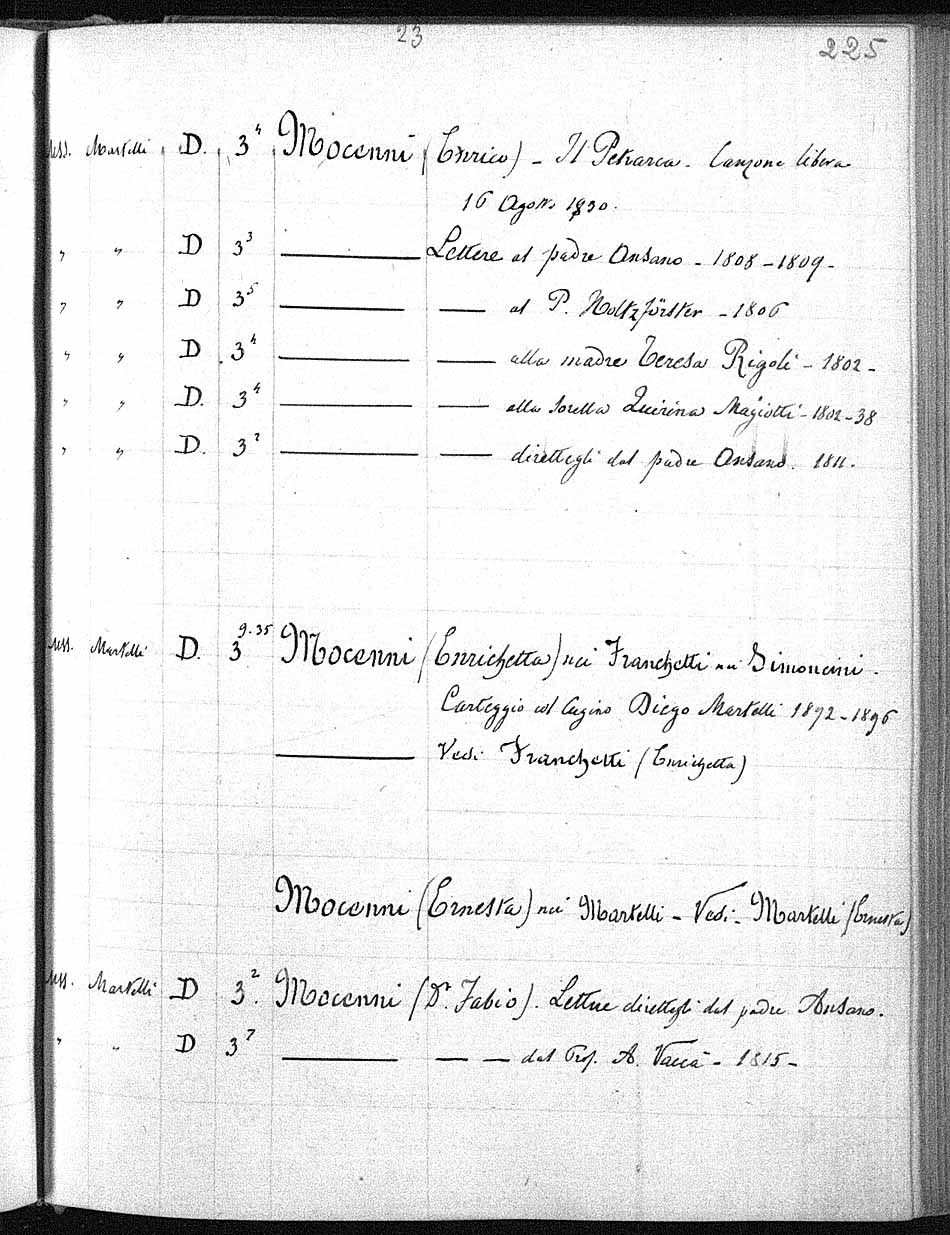 23
225
Mss. Martelli D. 3⁴ Mocenni (Enrico) - Il Petrarca - Canzone libera
16 Agosto 1830.
" " D 3³ ——— Lettere al padre Ansano - 1808 - 1809 -
" " D 3⁵ ——— —— al P. Holtzfürster - 1806
" " D 3⁴ ——— —— alla madre Teresa Rigoli - 1802 -
" " D. 3⁴ ——— —— alla sorella Quirina Magiotti - 1802 - 38
" " D. 3² ——— —— direttegli dal padre Ansano. 1811.
Mss. Martelli D. 3 9.35 Mocenni (Enrichetta) nei Franchetti nei Simoncini -
Carteggio col Cugino Diego Martelli 1892 - 1896
——— Vedi Franchetti (Enrichetta)
Mocenni (Ernesta) nei Martelli - Vedi - Martelli (Ernesta)
Mss. Martelli D 3². Mocenni (Dr. Fabio). Lettere direttegli dal padre Ansano.
" " D 3⁷ ——— — — dal Prof. A. Vaccà - 1815 -